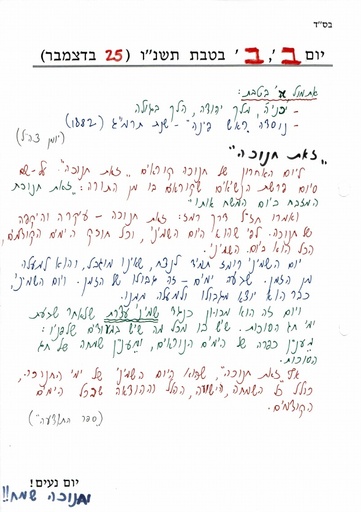 בס"ד
יום ב', ב' בטבת תשנ"ו (25 בדצמבר)
אתמול א' בטבת:
- יכניה, מלך יהודה, הלך בגולה
- נוסדה ראש פינה - שנת תרמ"ג (1882)
(יומן צה"ל)
"זאת חנוכה"
ליום האחרון של חנוכה קוראים "זאת חנוכה". על-שם
סיום פרשת הנשיאים שקוראים בו מן התורה: "זאת חנוכת
המזבח ביום המשח אותו"
ואמרו חז"ל דרך רמז: זאת חנוכה - עיקרה והיקפה
של חנוכה. לפי שהוא היום השמיני, וכל תוקף הימים הקודמים,
הכל הוא ביום השמיני.
יום השמיני רומז תמיד לנצח, שאינו מוגבל, והוא למעלה
מן הזמן. שבעת ימים - זה גבולו של הזמן. ויום השמיני,
כבר הוא יוצא מגבולו ולמעלה ממנו.
ויום זה הוא מכוון כנגד שמיני עצרת שלאחר שבעת
ימי חג הסוכות. שיש בו מכל מה שיש במועדים שלפניו:
מענין כפרה של הימים הנוראים, ומענין שמחה של חג
הסוכות.
אף "זאת חנוכה", שהוא היום השמיני של ימי החנוכה,
כולל כל השמחה, הישועה, ההלל וההודאה שבכל הימים
הקודמים.
(ספר התודעה)
יום נעים!
וחנוכה שמח!!